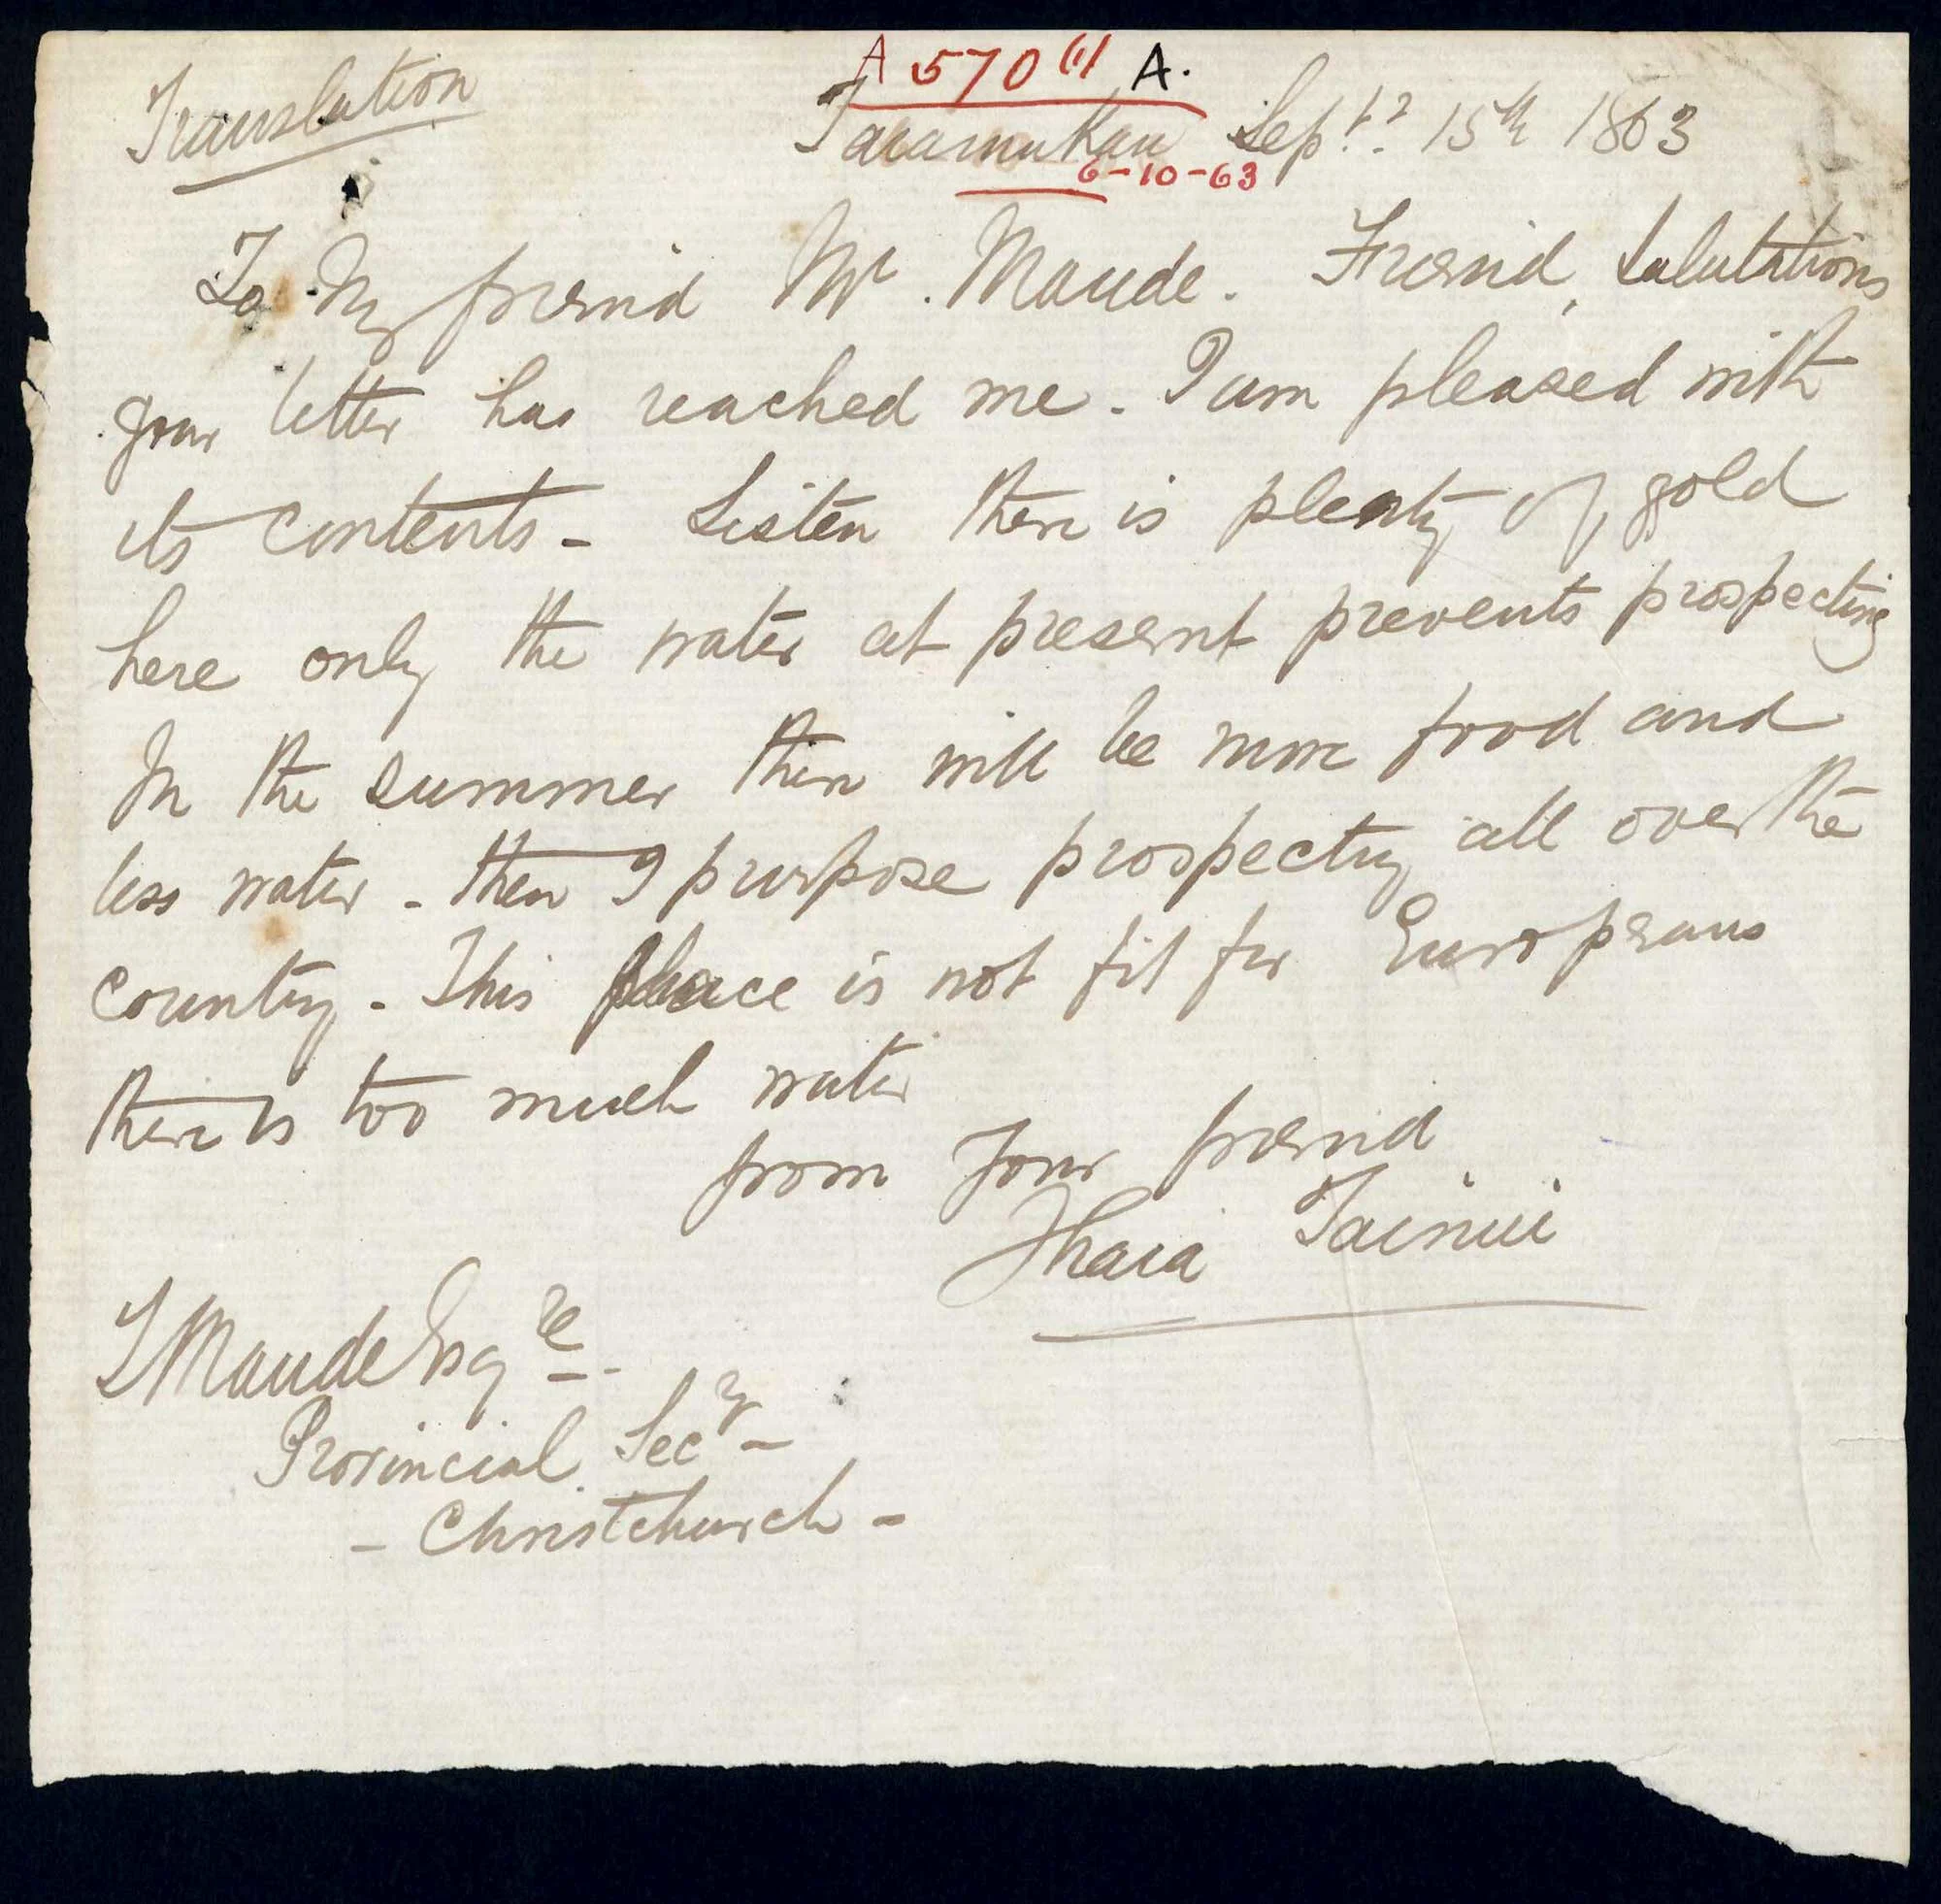 A 570 (1) A.
Translation
Taramukau Sept. 15th 1863
6-10-63
To My freind Mr. Maude. Freind, Salutations
your letter has reached me. I am pleased with
its contents - Listen there is plenty of gold
here only the water at present prevents prospecting
In the summer there will be more food and
less water - then I purpose prospecting all over the
country - This place is not fit for Europeans
there is too much water
from Your freind
Ihaia Tainui
T Maude Esqre -
Provincial Secy -
- Christchurch -